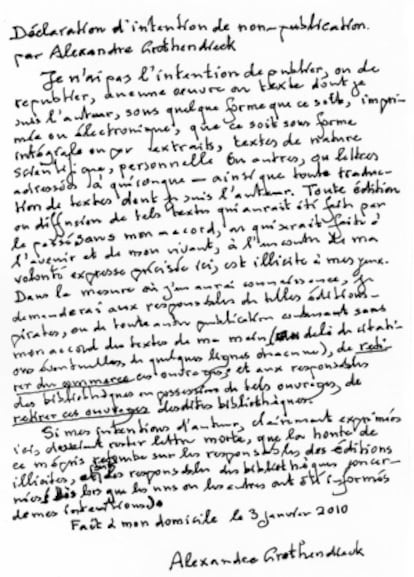 Déclaration d'intention de non-publication
par Alexandre Grothendieck
Je n'ai pas l'intention de publier, ou de
republier, aucune œuvre ou texte dont je
suis l'auteur, sous quelque forme que ce soit, impri-
mée ou électronique, que ce soit sous forme
intégrale ou par extraits, textes de nature
scientifique, personnelle ou autres, ou lettres
adressées à quiconque — ainsi que toute traduc-
tion de textes dont je suis l'auteur. Toute édition
ou diffusion de tels textes qui aurait été faite par
le passé sans mon accord, ou qui serait faite à
l'avenir et de mon vivant, à l'encontre de ma
volonté expresse précisée ici, est illicite à mes yeux.
Dans la mesure où j'en aurai connaissance, je
demanderai aux responsables de telles éditions-
pirates, ou de toute autre publication contenant sans
mon accord des textes de ma main (au delà de citati-
ons éventuelles de quelques lignes chacune), de reti-
rer du commerce ces ouvrages; et aux responsables
des bibliothèques en possession de tels ouvrages, de
retirer ces ouvrages desdites bibliothèques.
Si mes intentions d'auteur, clairement exprimées
ici, devaient rester lettre morte, que la honte de
ce mépris retombe sur les responsables des éditions
illicites, et sur les responsables des bibliothèques concer-
nées (dès lors que les uns ou les autres ont été informés
de mes intentions).
Fait à mon domicile le 3 janvier 2010
Alexandre Grothendieck